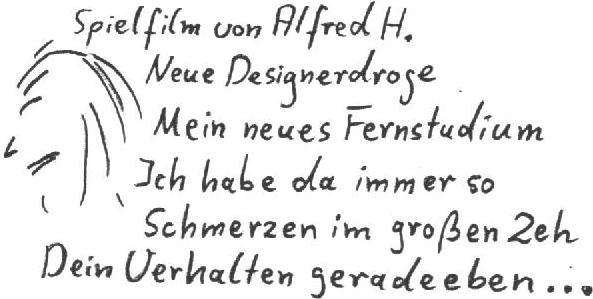 Spielfilm von Alfred H.
Neue Designerdroge
Mein neues Fernstudium
Ich habe da immer so
Schmerzen im großen Zeh
Dein Verhalten geradeeben...